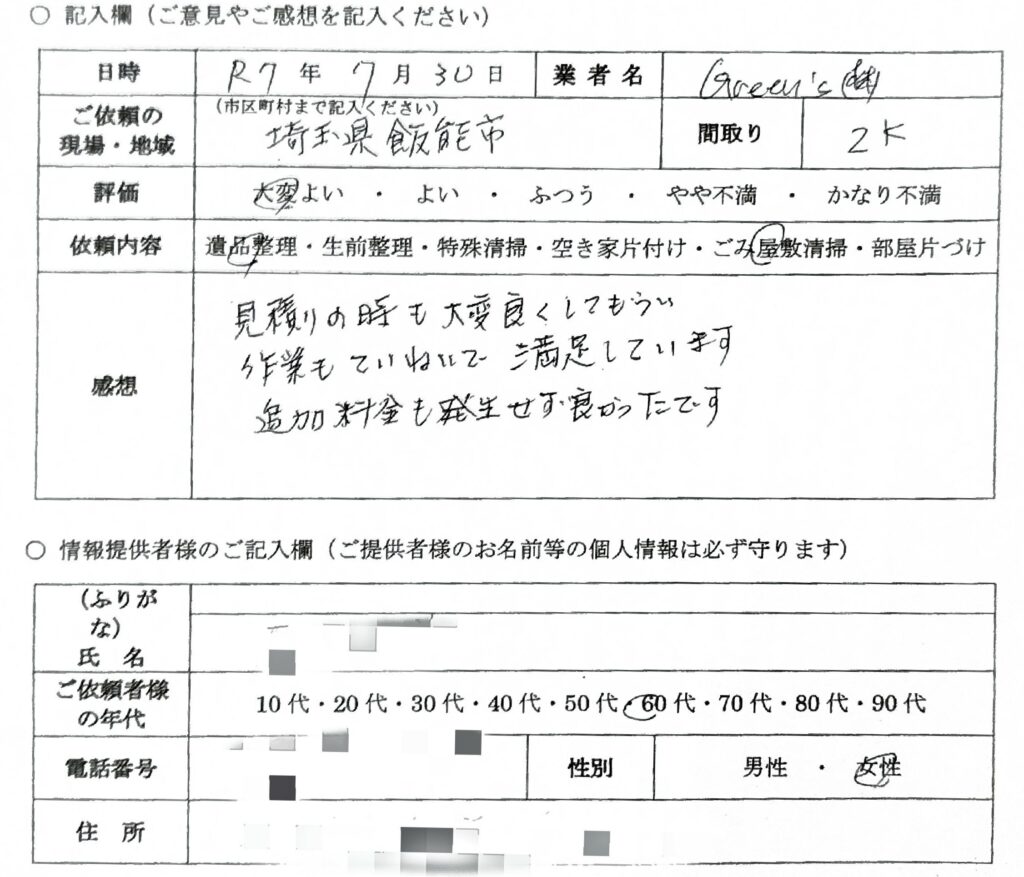 ○ 記入欄（ご意見やご感想を記入ください）
日時 R7年 7月 30日 業者名 Green's ㈱
ご依頼の現場・地域 (市区町村まで記入ください) 埼玉県飯能市 間取り 2K
評価 大変よい ・ よい ・ ふつう ・ やや不満 ・ かなり不満
依頼内容 遺品整理・生前整理・特殊清掃・空き家片付け・ごみ屋敷清掃・部屋片づけ
感想
見積りの時も大変良くしてもらい
作業もていねいで 満足しています
追加料金も発生せず良かったです
○ 情報提供者様のご記入欄（ご提供者様のお名前等の個人情報は必ず守ります）
(ふりがな)
氏 名
ご依頼者様の年代 10代・20代・30代・40代・50代・60代・70代・80代・90代
電話番号 性別 男性 ・ 女性
住 所